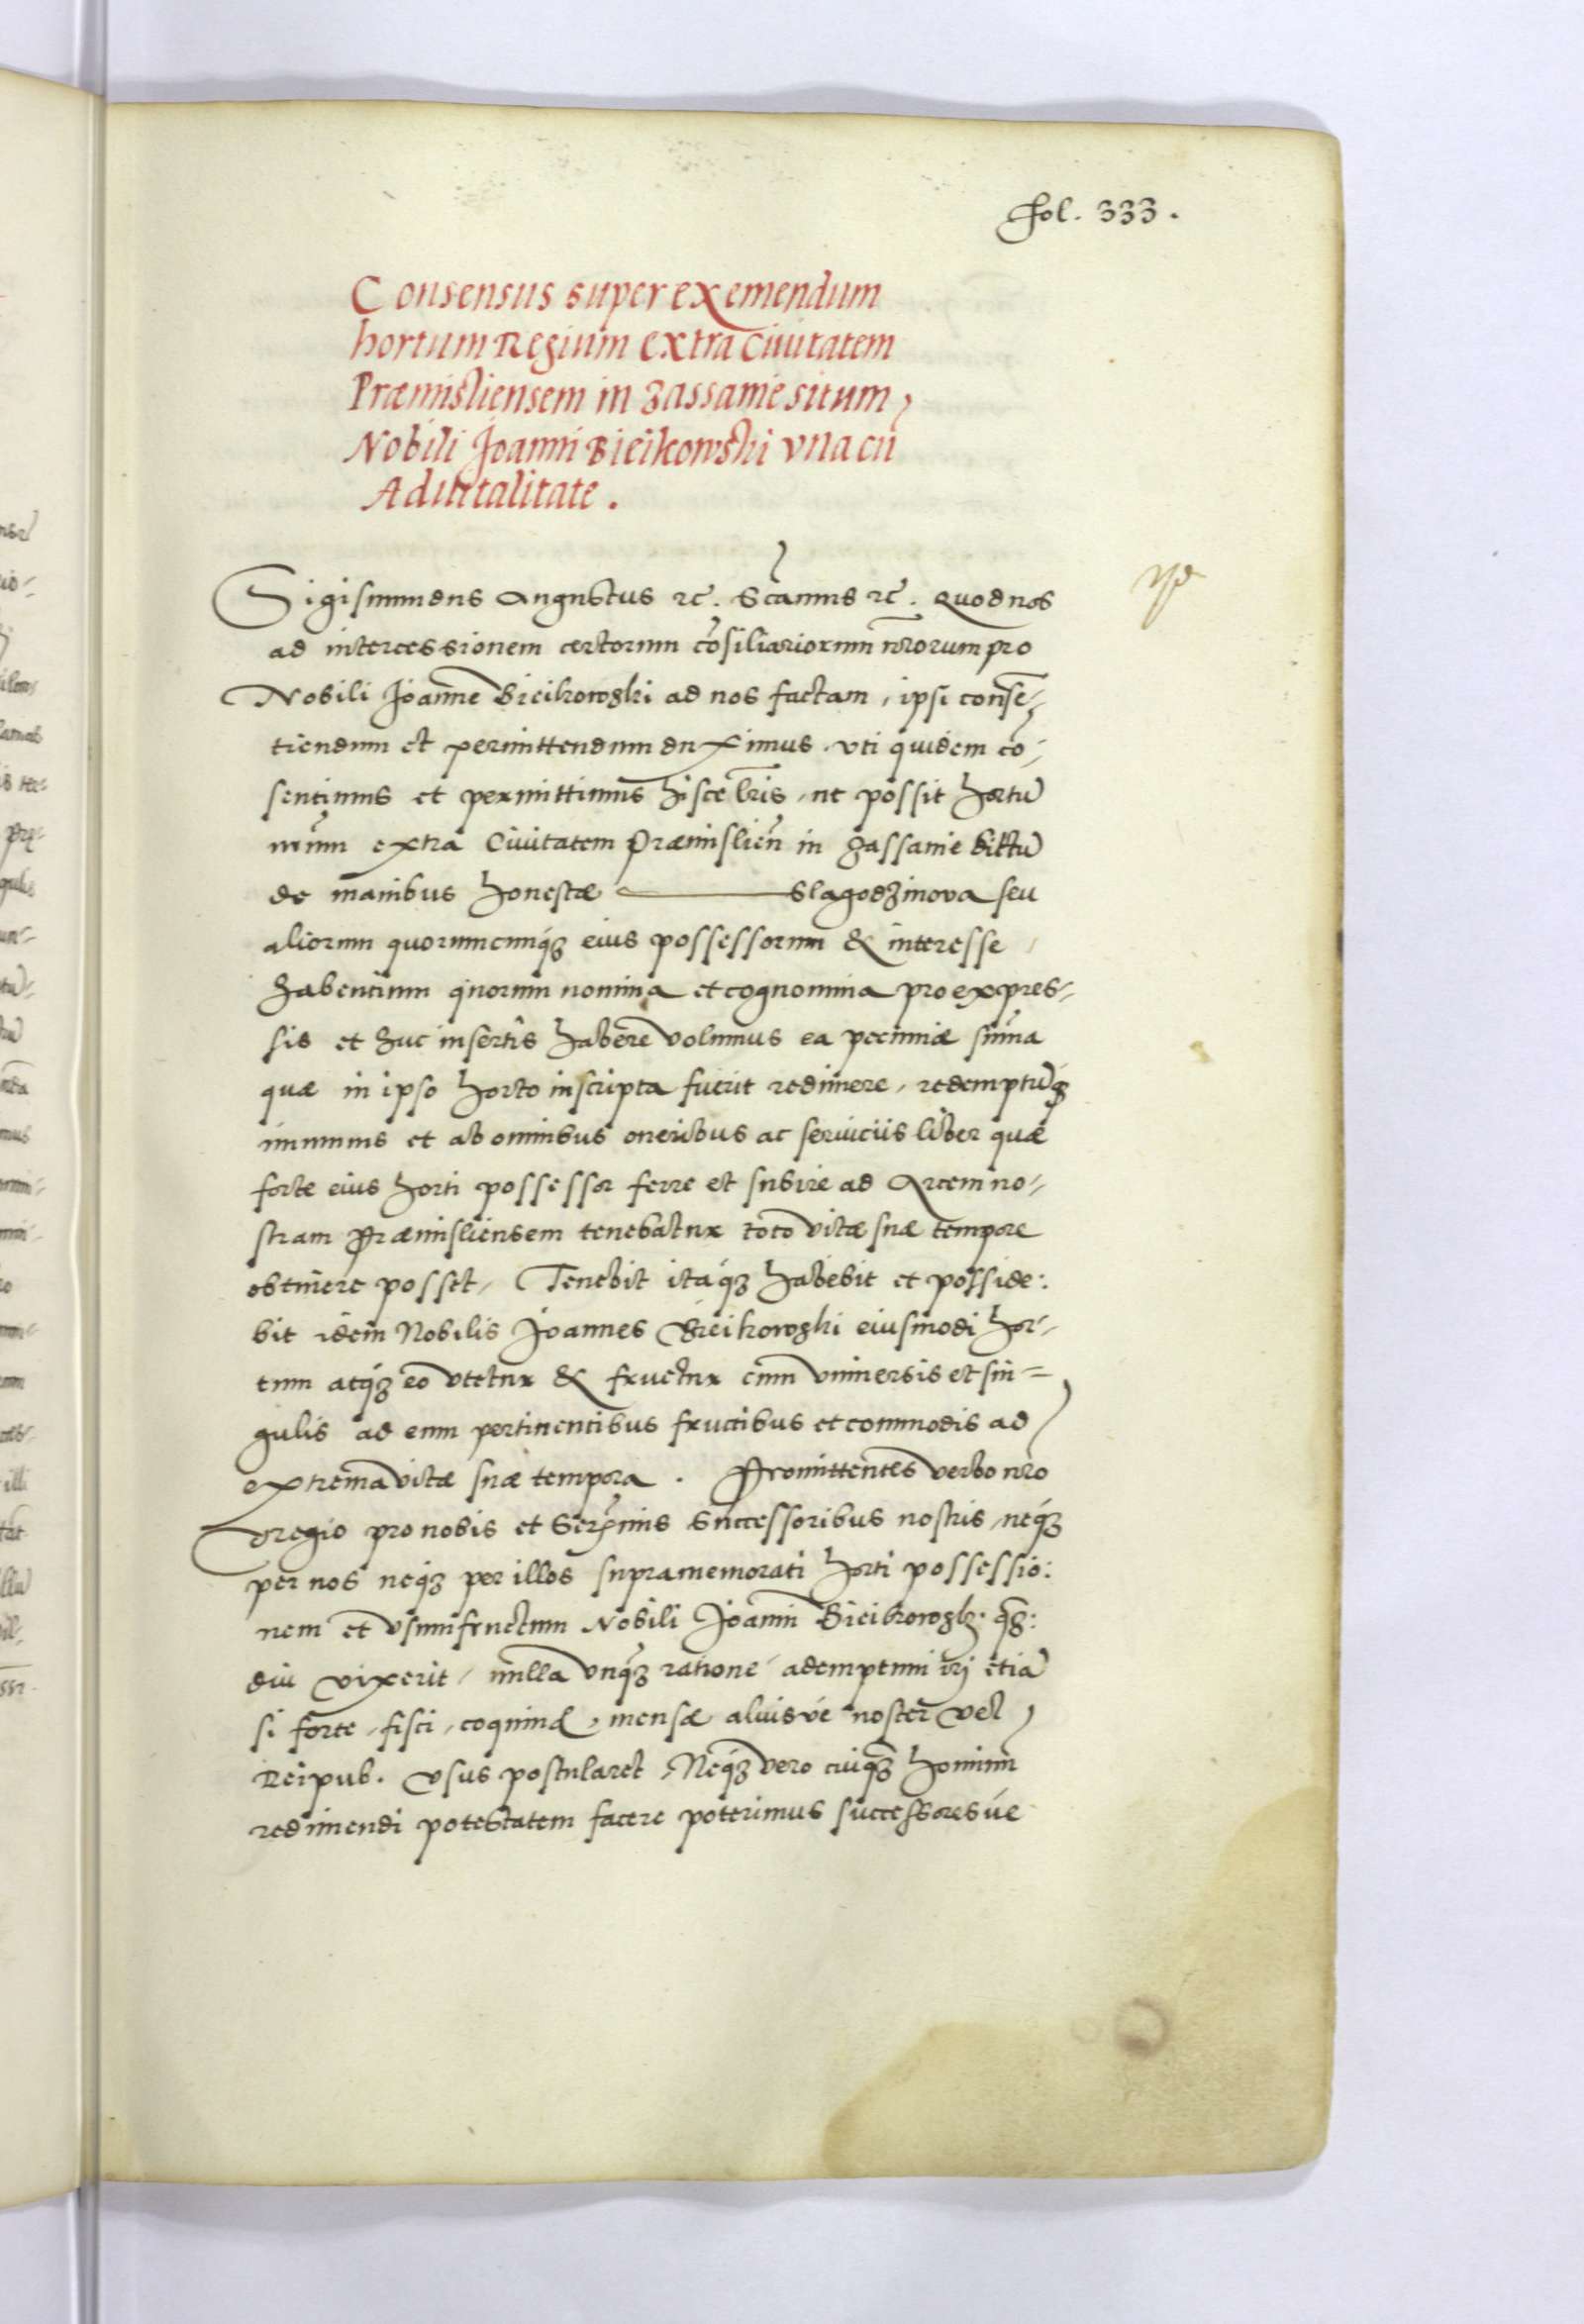 Fol. 333.
Consensus super exemendum
hortum Regium extra Ciuitatem
Præmisliensem in Zassanie situm,
Nobili Joanni Bieikowski vna cū
Aduitalitate.
Sigismundus Augustus ꝛc. Sc̄amus ꝛc. Quod nos
ad intercessionem certorum cōsiliariorum nr̄orum pro
Nobili Joanne Bieikowski ad nos factam, ipsi consē-
tiendum et permittendum duximus. vti quidem cō-
sentimus et permittimus hisce lr̄is, ut possit hortū
nr̄um extra Ciuitatem Præmislieñ in Zassanie dictū
de manibus honestæ ——— Slagodzinova seu
aliorum quorumcunqꝫ eius possessorum & interesse
habentium quorum nomina et cognomina pro expres-
sis et huc insertis habere volumus ea pecuniæ sūma
quæ in ipso horto inscripta fuerit redimere, redemptūqꝫ
immunis et ab omnibus oneribus ac seruiciis liber quæ
forte eius horti possessor ferre et subire ad Arcem no-
stram Præmisliensem tenebatur toto vitæ suæ tempore
obtinere posset, Tenebit itaqꝫ habebit et posside:
bit idem Nobilis Joannes Bieikowski eiusmodi hor-
tum atqꝫ eo vtetur & fruetur cum vniuersis et sin=
gulis ad eum pertinentibus fructibus et commodis ad
extrema vitæ suæ tempora. Promittentes verbo nr̄o
regio pro nobis et Serx̄mis Successoribus nostris, neqꝫ
per nos neqꝫ per illos supramemorati horti possessio:
nem et vsumfructum Nobili Joanni Bieikowsk. qꝫ:
diu vixerit, nulla vnqꝫ ratione ademptum irj etiā
si forte, fisci, coquinæ, mensæ aluisve noster vel
Reipub. vsus postularet, Neqꝫ vero cuiqꝫ hominū
redimendi potestatem facere poterimus successoresúe